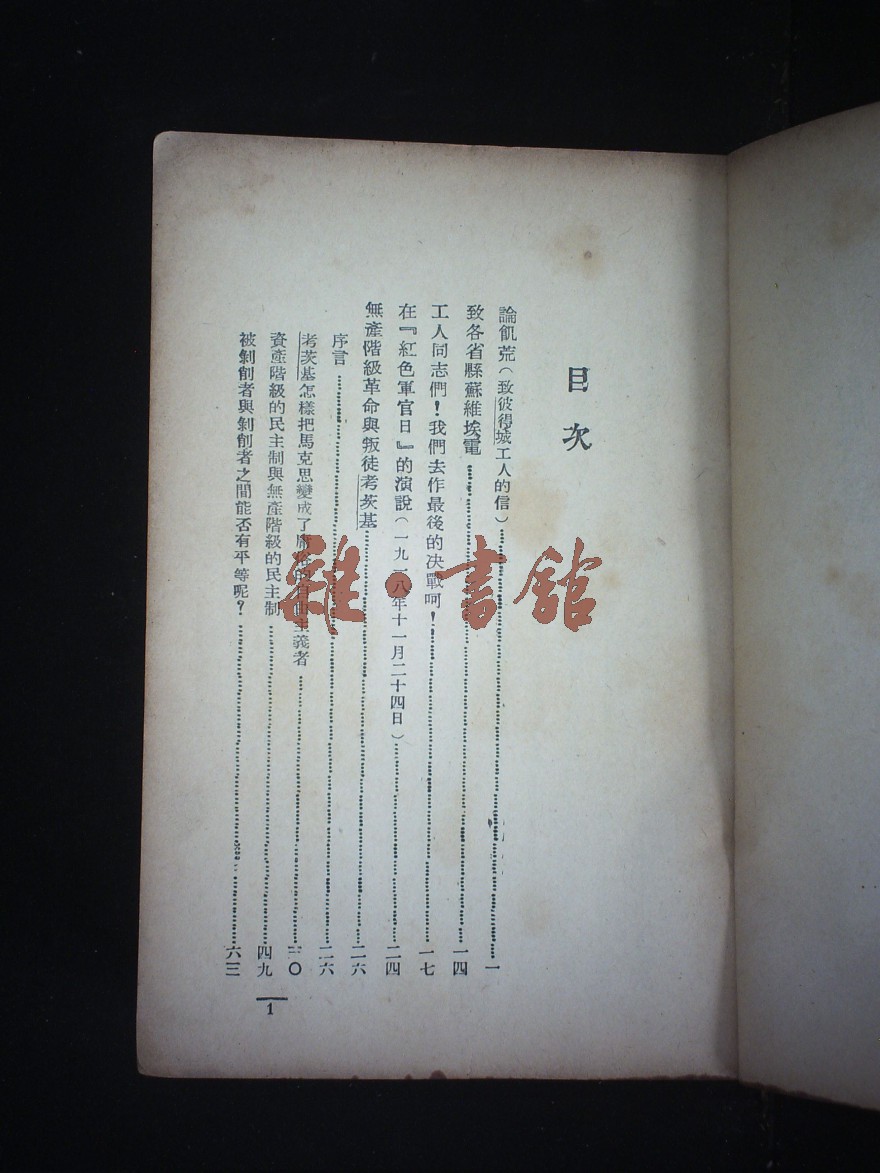 目次
論飢荒（致彼得城工人的信）…………一
致各省縣蘇維埃電…………一四
工人同志們！我們去作最後的决戰呵！…………一七
在『紅色軍官日』的演說（一九一八年十一月二十四日）…………二四
無產階級革命與叛徒考茨基…………二六
序言…………二六
考茨基怎樣把馬克思變成了庸俗的自由主義者…………三〇
資產階級的民主制與無產階級的民主制…………四九
被剝削者與剝削者之間能否有平等呢？…………六三
1
雜·書館